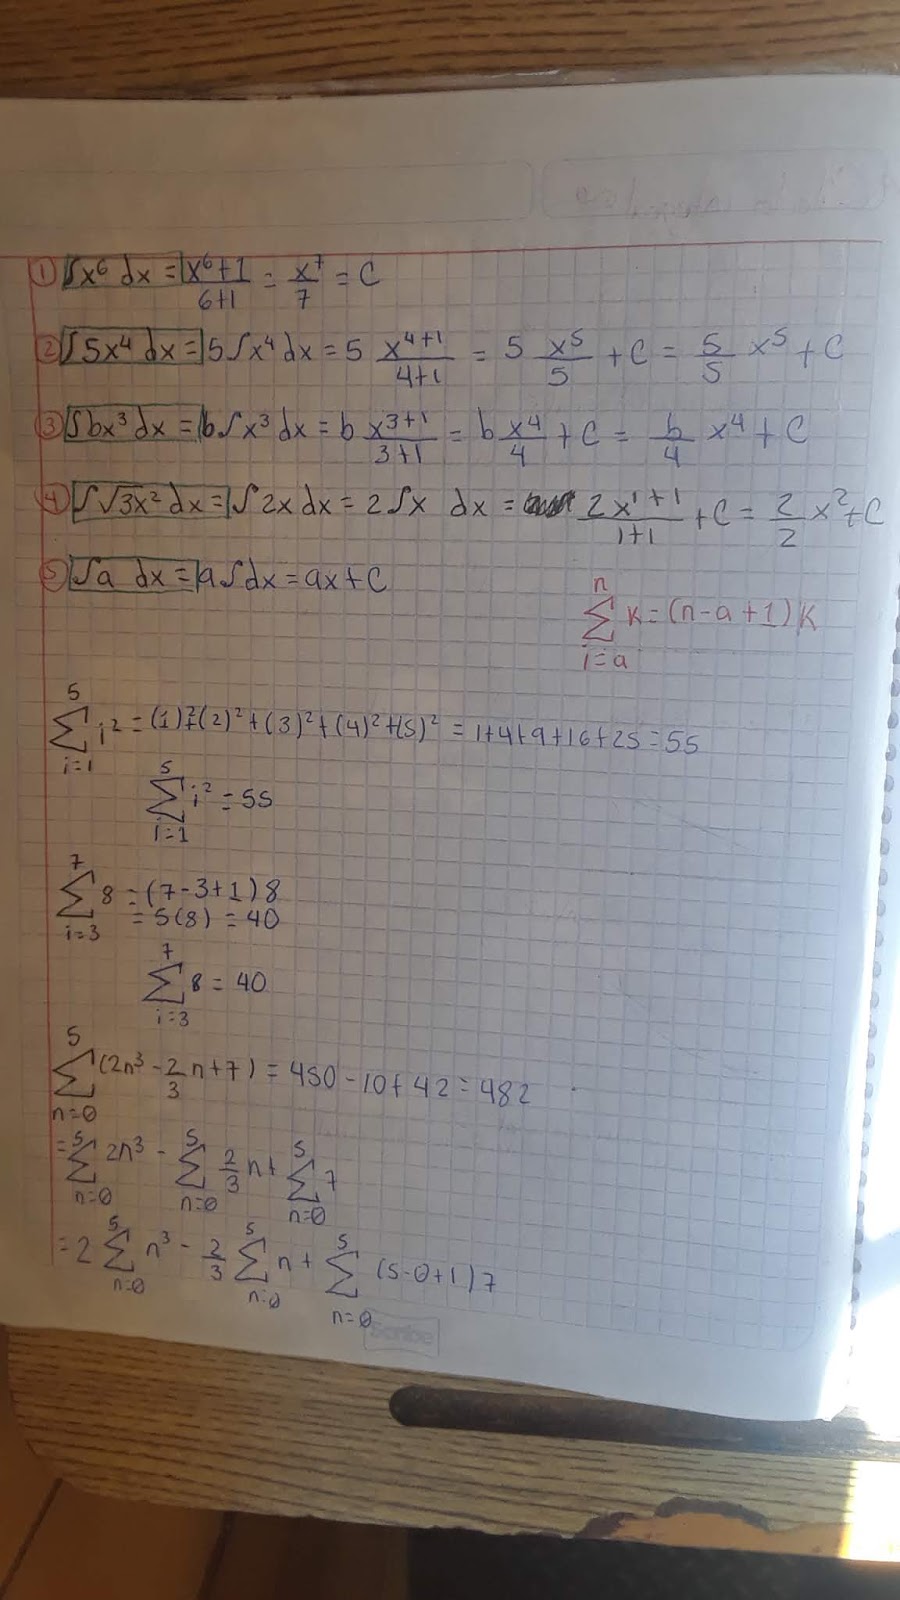 ① ∫x⁶ dx = x⁶⁺¹/6+1 = x⁷/7 = C
② ∫5x⁴ dx = 5∫x⁴ dx = 5 x⁴⁺¹/4+1 = 5 x⁵/5 + C = 5/5 x⁵ + C
③ ∫bx³ dx = b∫x³ dx = b x³⁺¹/3+1 = b x⁴/4 + C = b/4 x⁴ + C
④ ∫√3x² dx = ∫2x dx = 2∫x dx = 2x¹⁺¹/1+1 + C = 2/2 x² + C
⑤ ∫a dx = a∫dx = ax + C
n
∑ K = (n-a+1)K
i=a
5
∑ i² = (1)²+(2)²+(3)²+(4)²+(5)² = 1+4+9+16+25 = 55
i=1
5
∑ i² = 55
i=1
7
∑ 8 = (7-3+1)8
i=3 = 5(8) = 40
7
∑ 8 = 40
i=3
5
∑ (2n³ - 2/3 n + 7) = 450 - 10 + 42 = 482
n=0
5 5 5
= ∑ 2n³ - ∑ 2/3 n + ∑ 7
n=0 n=0 n=0
5 5 5
= 2 ∑ n³ - 2/3 ∑ n + ∑ (5-0+1)7
n=0 n=0 n=0
Scribe